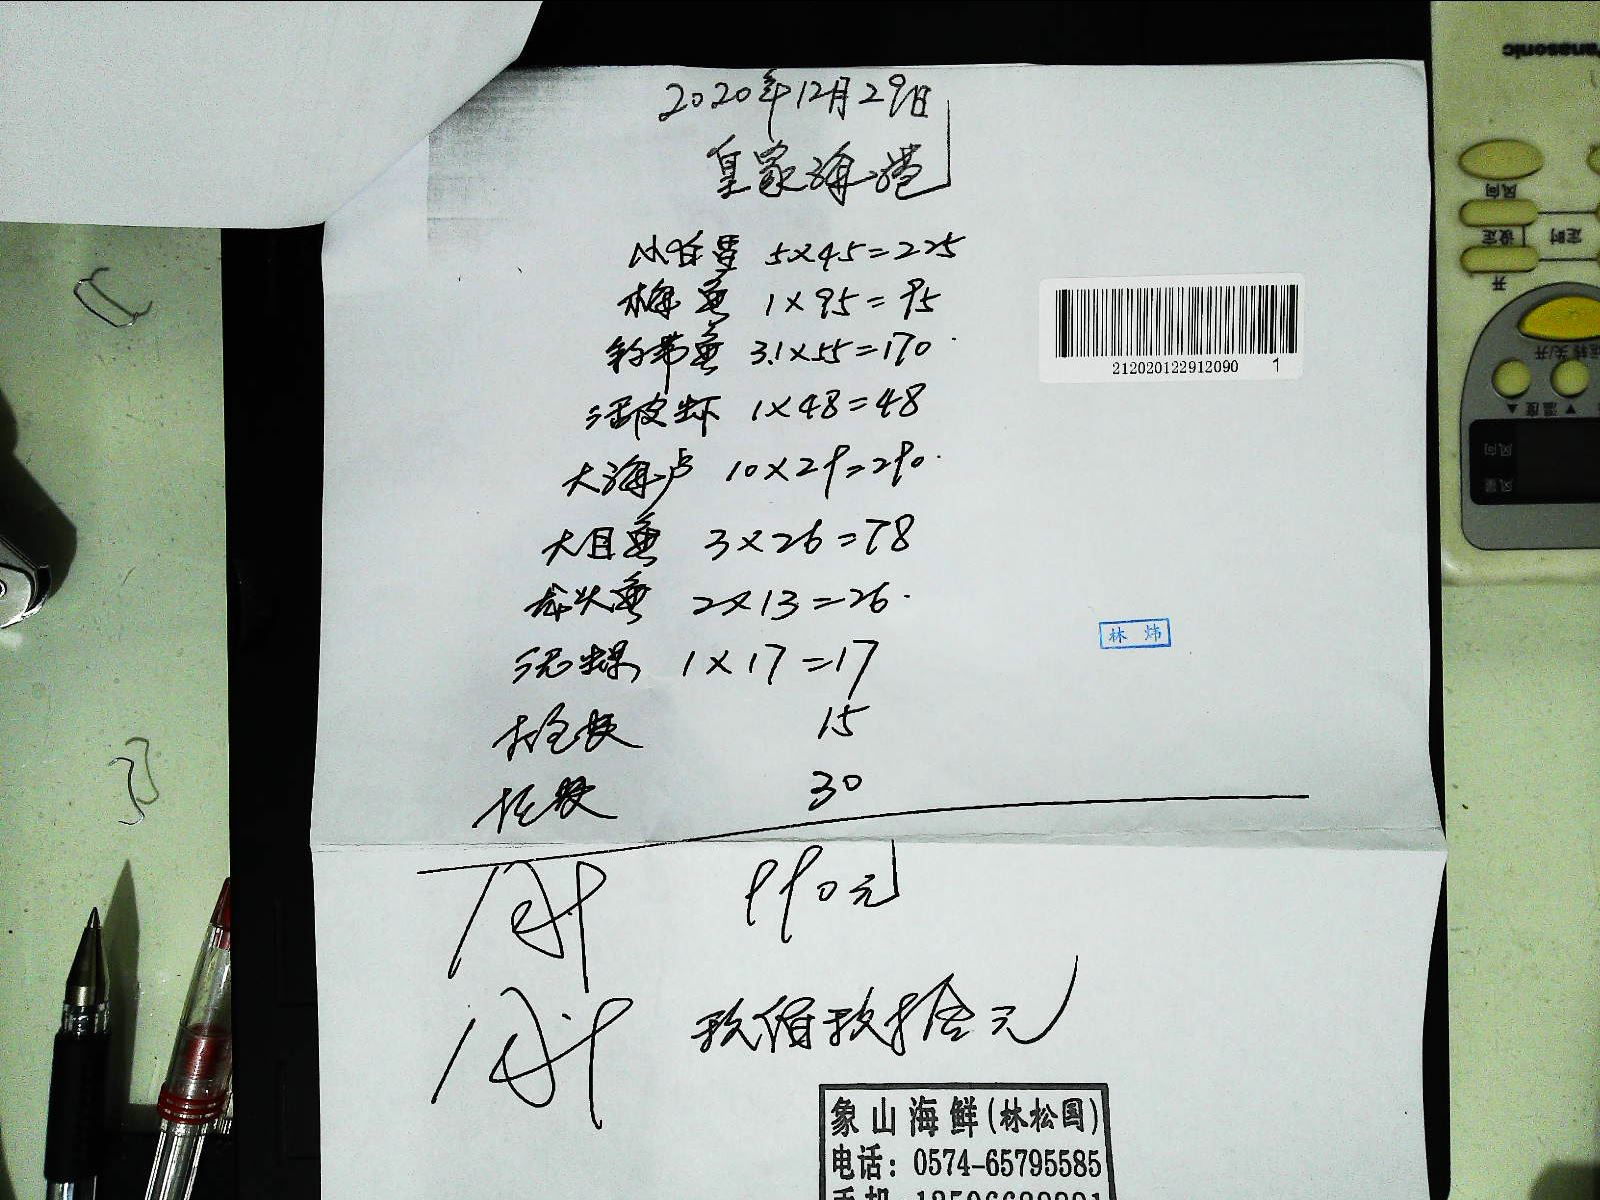 2020年12月29日
皇家海港
小白黄 5×45=225
梅鱼 1×95=95
钓带鱼 3.1×55=170
活皮虾 1×48=48
大海卢 10×29=290
大目鱼 3×26=78
龙头鱼 2×13=26
1×17=17
15
30
合计 990元
合计 玖佰玖拾元
212020122912090 1
林 炜
象山海鲜(林松国)
电话: 0574-65795585
Panasonic
风向
设定
定时
开
运转 关/开
▲ 温度 ▼
风向
风量